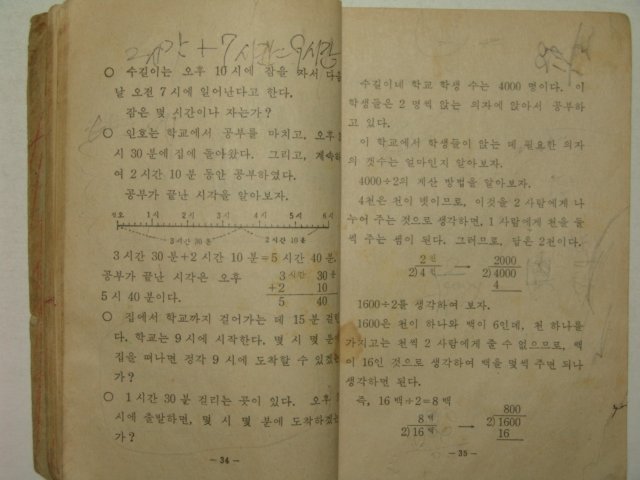 2시간 + 7시간=9시간
○ 수길이는 오후 10시에 잠을 자서 다음
날 오전 7시에 일어난다고 한다.
잠은 몇 시간이나 자는가?
○ 인호는 학교에서 공부를 마치고, 오후
시 30분에 집에 돌아왔다. 그리고, 계속하
여 2시간 10분 동안 공부하였다.
공부가 끝난 시각을 알아보자.
정오 1시 2시 3시 4시 5시 6시
3시간 30분 2시간 10분
3시간 30분+2시간 10분=5시간 40분
공부가 끝난 시각은 오후
5시 40분이다.
3시간 30분
+2 10
5 40
○ 집에서 학교까지 걸어가는 데 15분 걸린
다. 학교는 9시에 시작한다. 몇 시 몇 분에
집을 떠나면 정각 9시에 도착할 수 있겠는
가?
○ 1시간 30분 걸리는 곳이 있다. 오후
시에 출발하면, 몇 시 몇 분에 도착하겠는
가?
- 34 -
수길이네 학교 학생 수는 4000명이다. 이
학생들은 2명씩 앉는 의자에 앉아서 공부하
고 있다.
이 학교에서 학생들이 앉는 데 필요한 의자
의 갯수는 얼마인지 알아보자.
4000÷2의 계산 방법을 알아보자.
4천은 천이 넷이므로, 이것을 2사람에게 나
누어 주는 것으로 생각하면, 1사람에게 천을 둘
씩 주는 셈이 된다. 그러므로, 답은 2천이다.
2천
2)4천
→
2000
2)4000
4
1600÷2를 생각하여 보자.
1600은 천이 하나와 백이 6인데, 천 하나를
가지고는 천씩 2사람에게 줄 수 없으므로, 백
이 16인 것으로 생각하여 백을 몇씩 주면 되나
생각하면 된다.
즉, 16백÷2=8백
8백
2)16백
→
800
2)1600
16
- 35 -